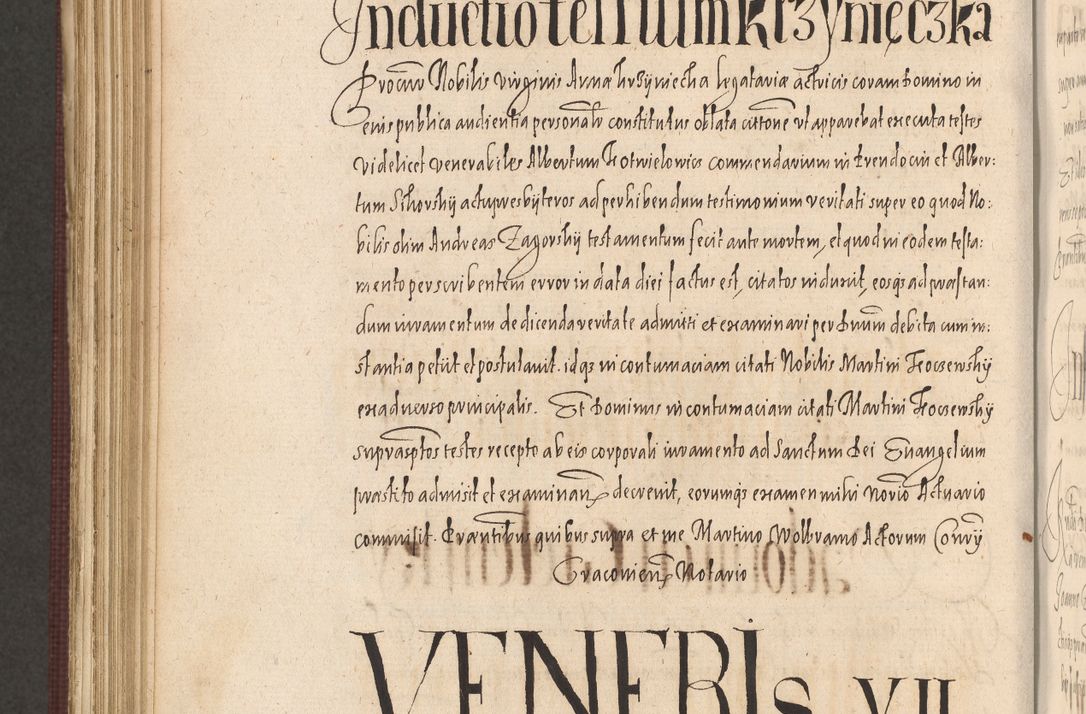 Inductio testium Krzynieczka
Procur Nobilis virginis Annæ Krzÿniecka legatariæ actricis coram Domino in
eius publica audientia personalr constitutus oblata cittone vt apparebat executa testes
videlicet venerabiles Albertum Kotwielowicz commendarium in Krendocin et Alber:
tum Sikorskÿ actu presbÿteros ad perhibendum testimonium veritati super eo quod No:
bilis olim Andreas Zagorskÿ testamentum fecit ante mortem, et quod in eodem testa:
mento per scribentem error in data diei factus est, citatos induxit, eosqs ad præstan:
dum iuramentum de dicenda veritate admitti et examinari per Dnum debita cum in:
stantia petiit et postulauit. idqs in contumaciam citati Nobilis Martini Koczewskÿ
ex aduerso principalis. Et Dominus in contumaciam citati Martini Koczewskÿ
suprasptos testes recepto ab eis corporali iuramento ad Sanctum Dei Euangelium
præstito admisit et examinan decreuit, eorumqs examen mihi Norio Actuario
commisit. Præntibus quibus supra et me Martino Wolbramo Actorum Conrÿ
Cracouien Notario
VENERIS VII